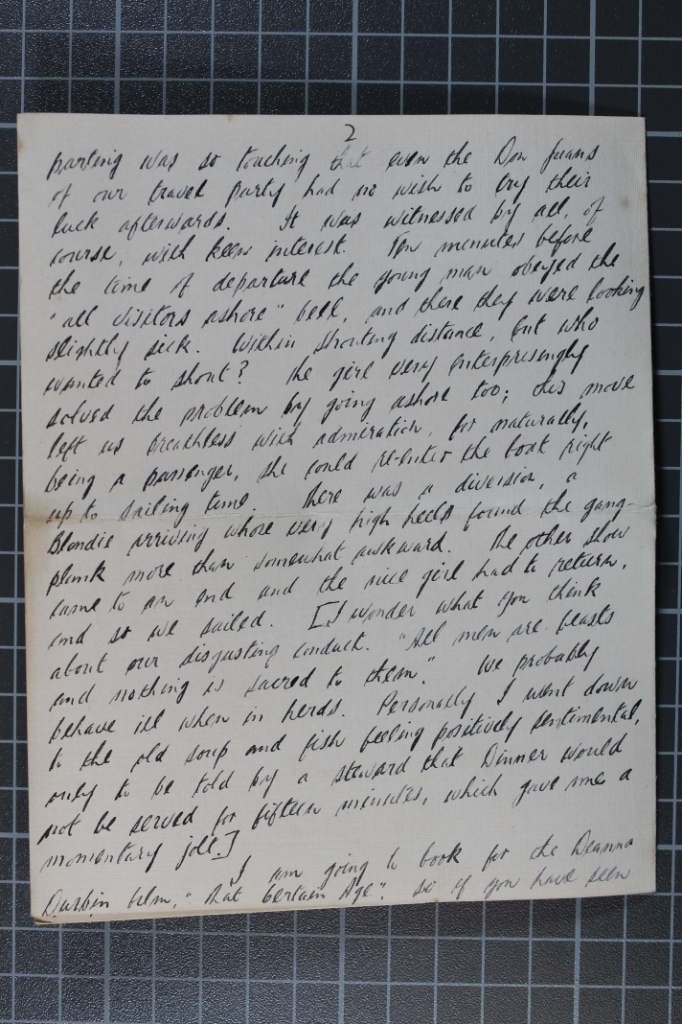 2
parting was so touching that even the Don Juans
of our travel party had no wish to try their
luck afterwards. It was witnessed by all, of
course, with keen interest. Ten minutes before
the time of departure the young man obeyed the
"all visitors ashore" bell, and there they were looking
slightly sick. Within shouting distance, but who
wanted to shout? The girl very enterprisingly
solved the problem by going ashore too; this move
left us breathless with admiration, for naturally,
being a passenger, she could re-enter the boat right
up to sailing time. There was a diversion, a
Blondie arriving whose very high heels found the gang-
plank more than somewhat awkward. The other show
came to an end and the nice girl had to return,
and so we sailed. [I wonder what you think
about our disgusting conduct. "All men are beasts
and nothing is sacred to them." We probably
behave ill when in herds. Personally I went down
to the old soup and fish feeling positively sentimental,
only to be told by a steward that Dinner would
not be served for fifteen minutes, which gave me a
momentary jolt.]
I am going to book for the Deanna
Durbin film, "That Certain Age". So if you have seen